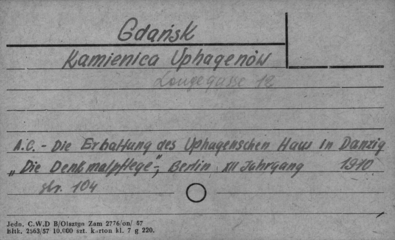 Gdańsk
Kamienica Uphagenów
Langegasse 12
A.C. - Die Erhaltung des Uphagenschen Haus in Danzig
„Die Denkmalpflege", Berlin XII Jahrgang 1910
str. 104
Jedn. C.W.D B/Olsztyn Zam 2776/on/ 57
bltk. 2563/57 10.000 szt. karton kl. 7 g 220.